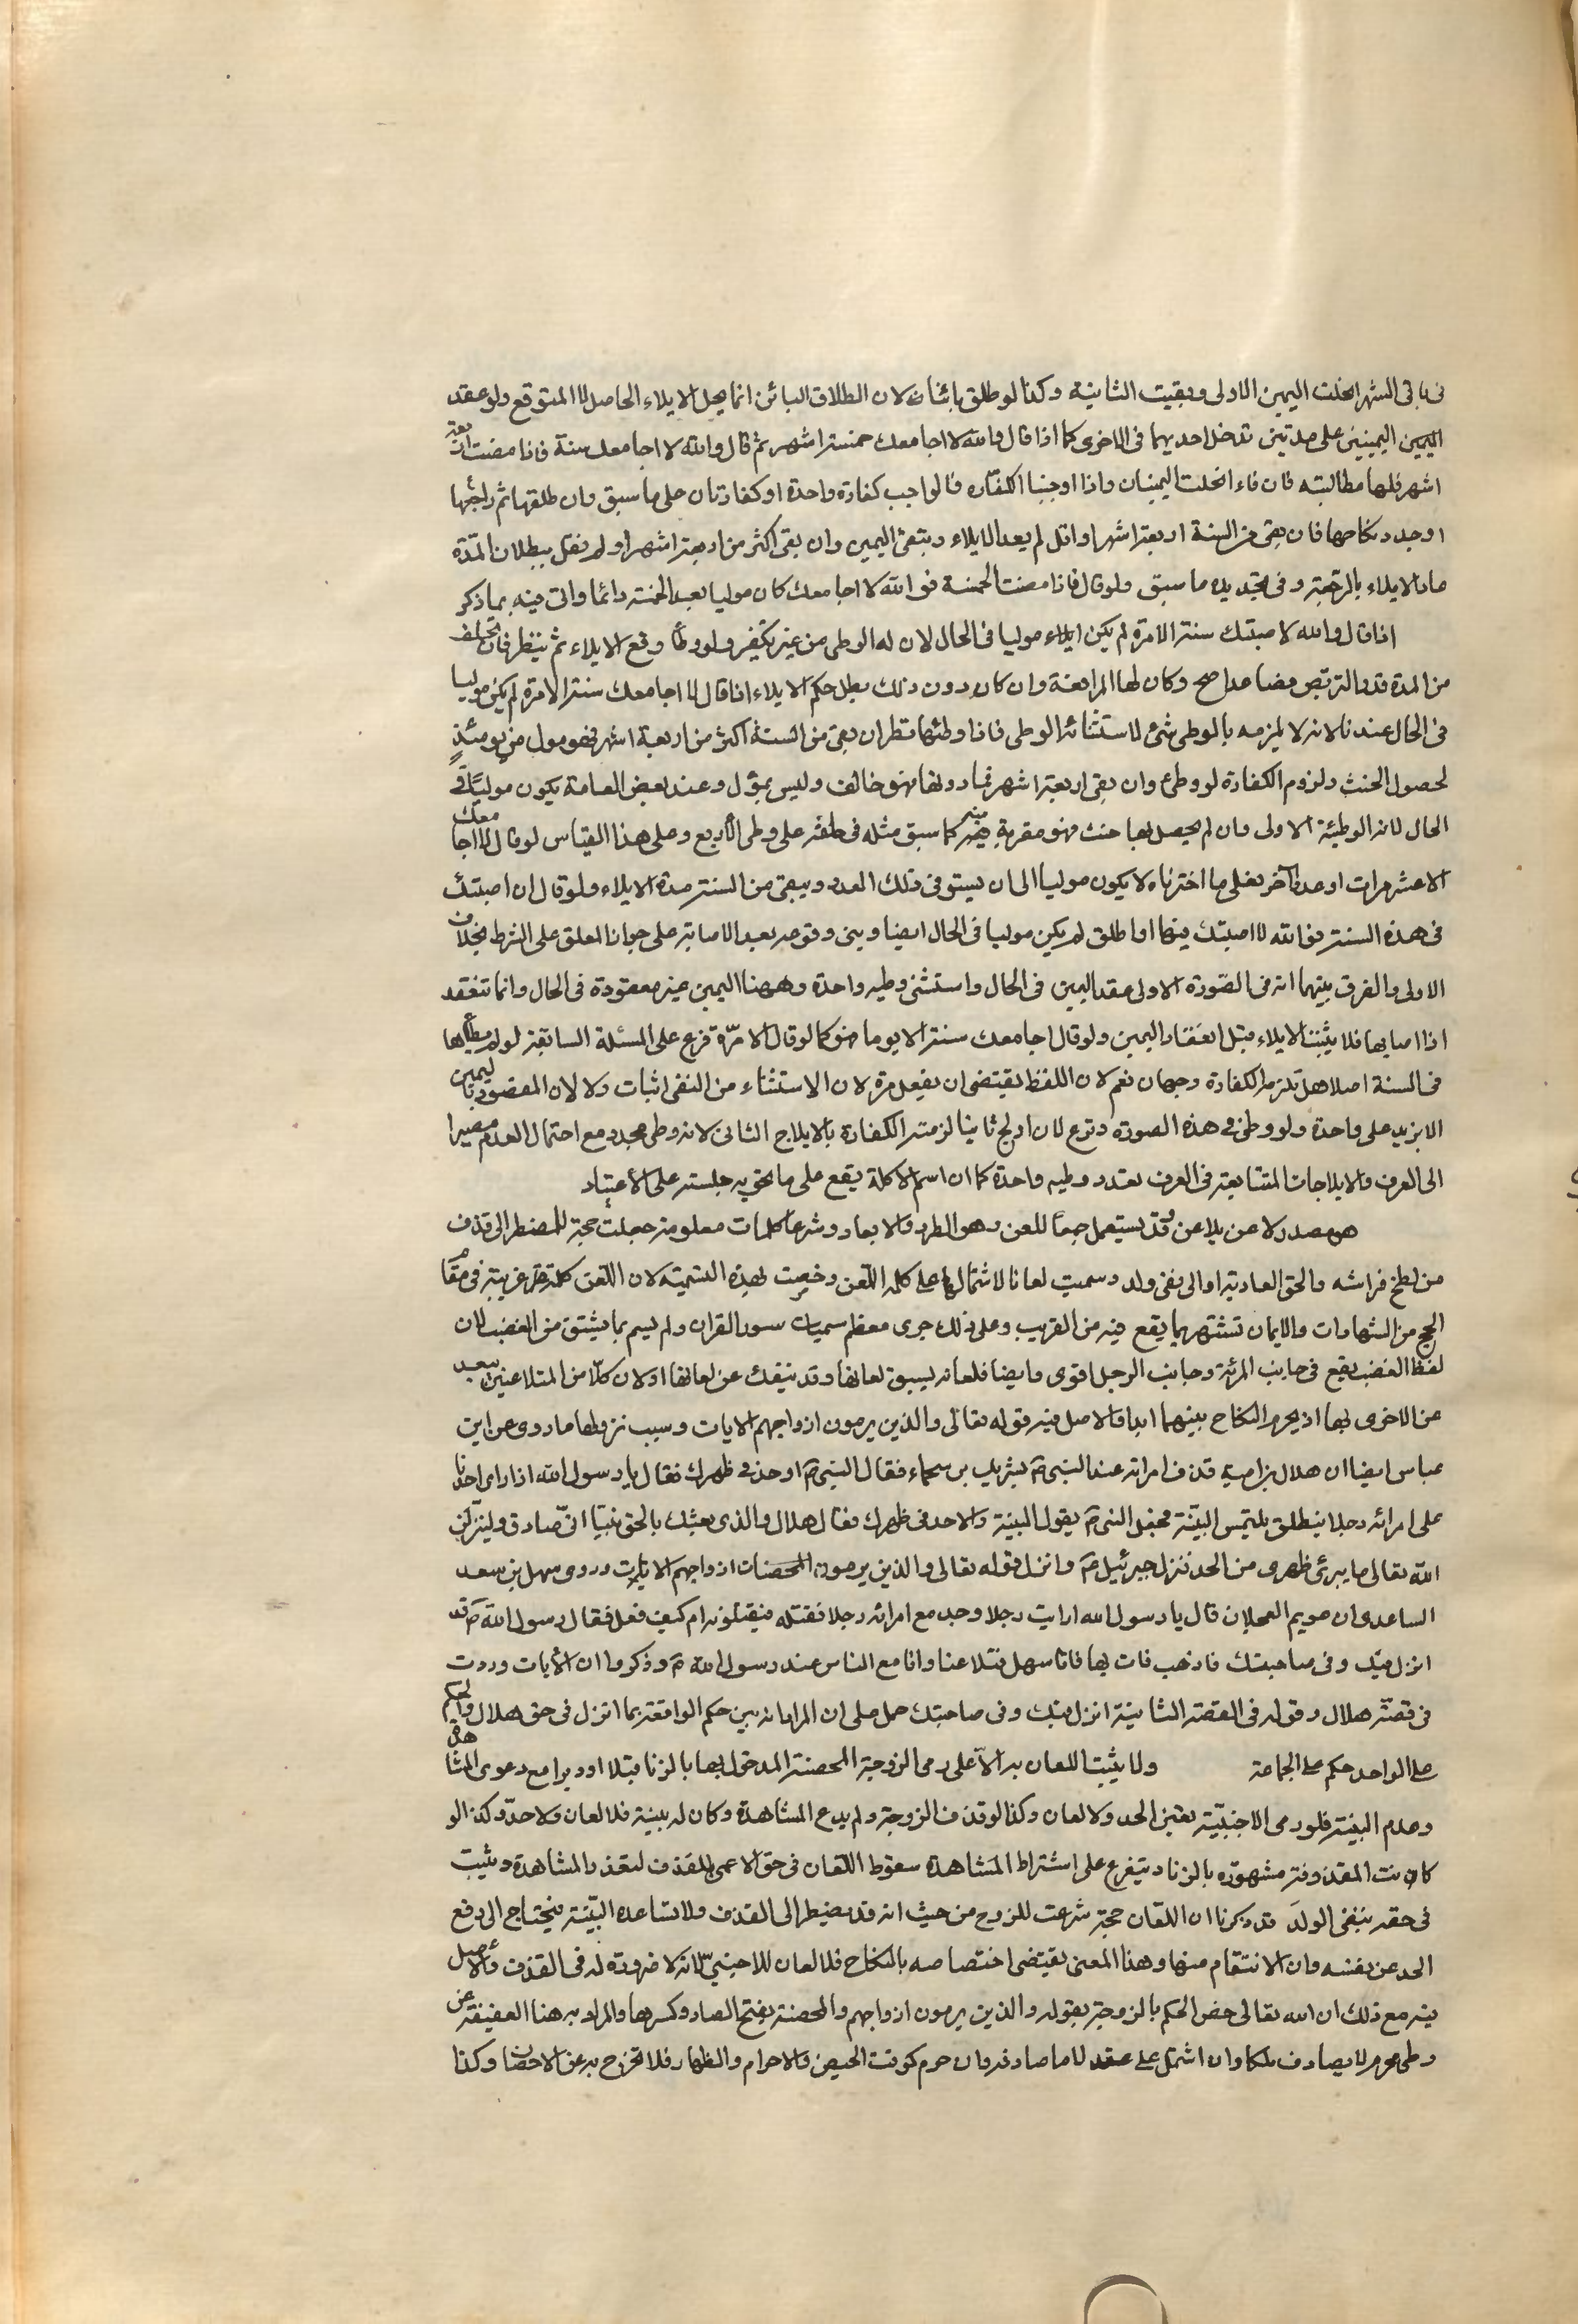 فى باقى الشهر انحلت اليمين الاولى وبقيت الثانية وكذا لو طلق بائنا لان الطلاق البائن انما يحل الايلاء الحاصل لا المتوقع ولو عقد
اليمين اليمينين على مدتين تدخل احديهما فى الاخرى كما اذا قال والله لا اجامعك خمسة اشهر ثم قال والله لا اجامعك سنة فاذا مضت اربعة
اشهر فلها مطالبته فان فاء انحلت اليمينان واذا اوجبنا الكفاره فالواجب كفارة واحدة او كفارتان على ما سبق وان طلقها ثم راجعها
او جدد نكاحها فان بقى من السنة اربعة اشهر او اقل لم يعد الايلاء وبتقى اليمين وان بقى اكثر من اربعة اشهر او لم نقل ببطلان المدة
عاد الايلاء بالرجعة وفى تجديده ما سبق ولو قال فاذا مضت الخمسة فوالله لا اجامعك كان موليا بعد الخمسة دائما واتى فيه بما ذكر
اذا قال والله لا صبتك سنة الا مرة لم يكن ايلاء موليا فى الحال لان له الوطى من غير تكفير ولو وطأ وقع الايلاء ثم ينظر فان تخلف
من المدة قدر التربص فصاعدا صح وكان لها المرافعة وان كان دون ذلك بطل حكم الايلاء اذا قال لا اجامعك سنة الا مرة لم يكن موليا
فى الحال عندنا لانه لا يلزمه بالوطى شئ لاستثنائه الوطى فاذا وطئها نظر ان بقى من السنة اكثر من اربعة اشهر فهو مول من يومئذٍ
لحصول الحنث ولزوم الكفارة لو وطئ وان بقى اربعة اشهر فما دونها فهو حالف وليس بمؤل وعند بعض العامة يكون موليًا فى
الحال لانه الوطيئة الاولى وان لم يحصل بها حنث فهو مقربة منه كما سبق مثله فى حلفه على وطى الأربع وعلى هذا القياس لو قال لا اجامعك
الا عشر مرات او عددا آخر فعلى ما اخترناه لا يكون موليا الى ان يستوفى ذلك العدد ويبقى من السنة مدة الايلاء ولو قال ان اصبتك
فى هذه السنة فوالله لا اصبتك فيها او اطلق لم يكن موليا فى الحال ايضا وبنى وقوعه بعد الاصابة على جواز المعلق على الشرط بخلاف
الاولى والفرق بينهما انه فى الصّورة الاولى عقد اليمين فى الحال واستثنى وطيه واحدة وههنا اليمين غير معقودة فى الحال وانما تنعقد
اذا اصابها فلا يثبت الايلاء قبل انعقاد اليمين ولو قال اجامعك سنة الا يوما فهو كما لو قال الا مرّة فرع على المسئلة السابقة لو لم يطاها
فى السنة اصلا هل تلزمه الكفارة وجهان نعم لان اللفظ يقتضى ان يفعل مرة لان الاستثناء من النفى اثبات ولا لان المقصود باليمين
الا يزيد على واحدة ولو وطئ فى هذه الصورة ونزع لان اولج ثانيا لزمته الكفارة بالايلاج الثانى لانه وطى مجدد مع احتمال العدم مصيرا
الى العرف والايلاجات المتتابعة فى العرف تعدد وطيه واحدة كما ان اسم الاكلة يقع على ما يحويه جلسته على الأعتياد
هو مصدر لاعن يلاعن وقد يستعمل جمعًا للعن وهو الطرد والابعاد وشرعا كلمات معلومة جعلت حجة للمضطر الى قذف
من لطخ فراشه والحق العار به او الى نفى ولد وسميت لعانا لاشتمالها على كلمة اللّعن وخصت بهذه التسمية لان اللّعن كلمة غريبة فى مقام
الحج من الشهادات والايمان تشتهر بما يقع فيه من الغريب وعلى ذلك جرى معظم سميات سور القران ولم يسم بما يشتق من الغضب لان
لفظ الغضب يقع فى جانب المرئة وجانب الرجل اقوى وايضا فلعانه يسبق لعانها وقد ينفك عن لعانها او لان كلًا من المتلاعنين يبعد
عن الاخرى بها اذ يحرم النكاح بينهما ابدا والاصل فيه قوله تعالى والذين يرمون ازواجهم الايات وسبب نزولها ما روى عن ابن
عباس ايضا ان هلال بن امية قذف امراته عند النبى ص بشريك بن سحماء فقال النبى ص او حد فى ظهرك فقال يا رسول الله اذا راى احدنا
على امراته رجلا ينطلق يلتمس البيّنة فجعل النبى ص يقول البينة والا حد فى ظهرك فقال هلال والذى بعثك بالحق نبيّا انّى صادق ولينزلن
الله تعالى ما يبرئ ظهرى من الحد فنزل جبرئيل ع وانزل قوله تعالى والذين يرمون المحصنات ازواجهم الايات وروى سهل بن سعد
الساعدى ان عويم العجلان قال يا رسول الله ارايت رجلا وجد مع امراته رجلا فقتله فيقتلونه ام كيف فعل فقال رسول الله ص قد
انزل فيك وفى صاحبتك فاذهب فات بها فاتا سهل فتلاعنا وانا مع الناس عند رسول الله ص وذكروا ان الأيات وردت
فى قصّة هلال وقوله فى القصة الثانية انزل فيك وفى صاحبتك حمل على ان المراد انه بين حكم الواقعة بما انزل فى حق هلال والحكم
على الواحد حكم على الجماعة ولا يثبت اللعان به الّا على رمى الزوجة المحصنة المدخول بها بالزنا قبلا او دبرا مع دعوى المشاهدة
وعدم البينة فلو رمى الاجنبيّة تعين الحد ولا لعان وكذا لو قذف الزوجة ولم يدع المشاهدة وكان له بينة فلا لعان ولا حدّ وكذا لو
كانت المقذوفة مشهورة بالزنا ويتفرع على اشتراط المشاهدة سقوط اللّعان فى حق الاعمى بالقذف لتعذر المشاهدة ويثبت
فى حقه بنفى الولد قد ذكرنا ان اللّعان حجة شرعت للزوج من حيث انه قد يضطر الى القذف ولا تساعده البيّنة فيحتاج الى دفع
الحد عن نفسه وان الانتقام منها وهذا المعنى يقتضى اختصاصه بالنكاح فلا لعان للاجنبىّ لانه لا ضرورة له فى القذف والاصل
فيه مع ذلك ان الله تعالى خص الحكم بالزوجة بقوله والذين يرمون ازواجهم والمحصنة بفتح الصاد وكسرها والمراد به هنا العفيفة عن
وطى محرم لا يصادف ملكا وان اشتمل على عقد لا ما صادفه وان حرم كوقت الحيض والاحرام والظهار فلا تخرج به عن الاحصان وكذا